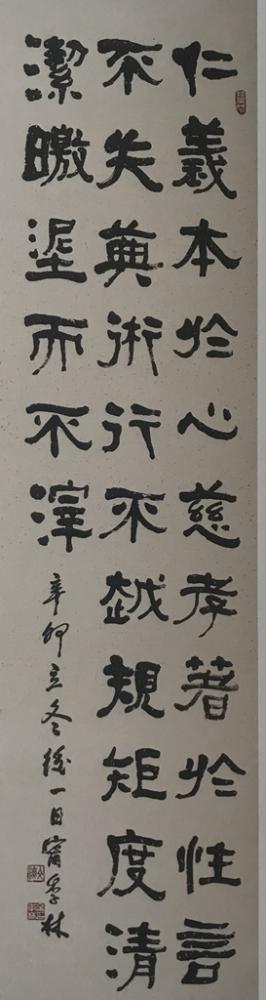 仁義本於心慈孝著於性言
不失典術行不越規矩度清
潔曒埿而不滓
辛卯立冬後一日